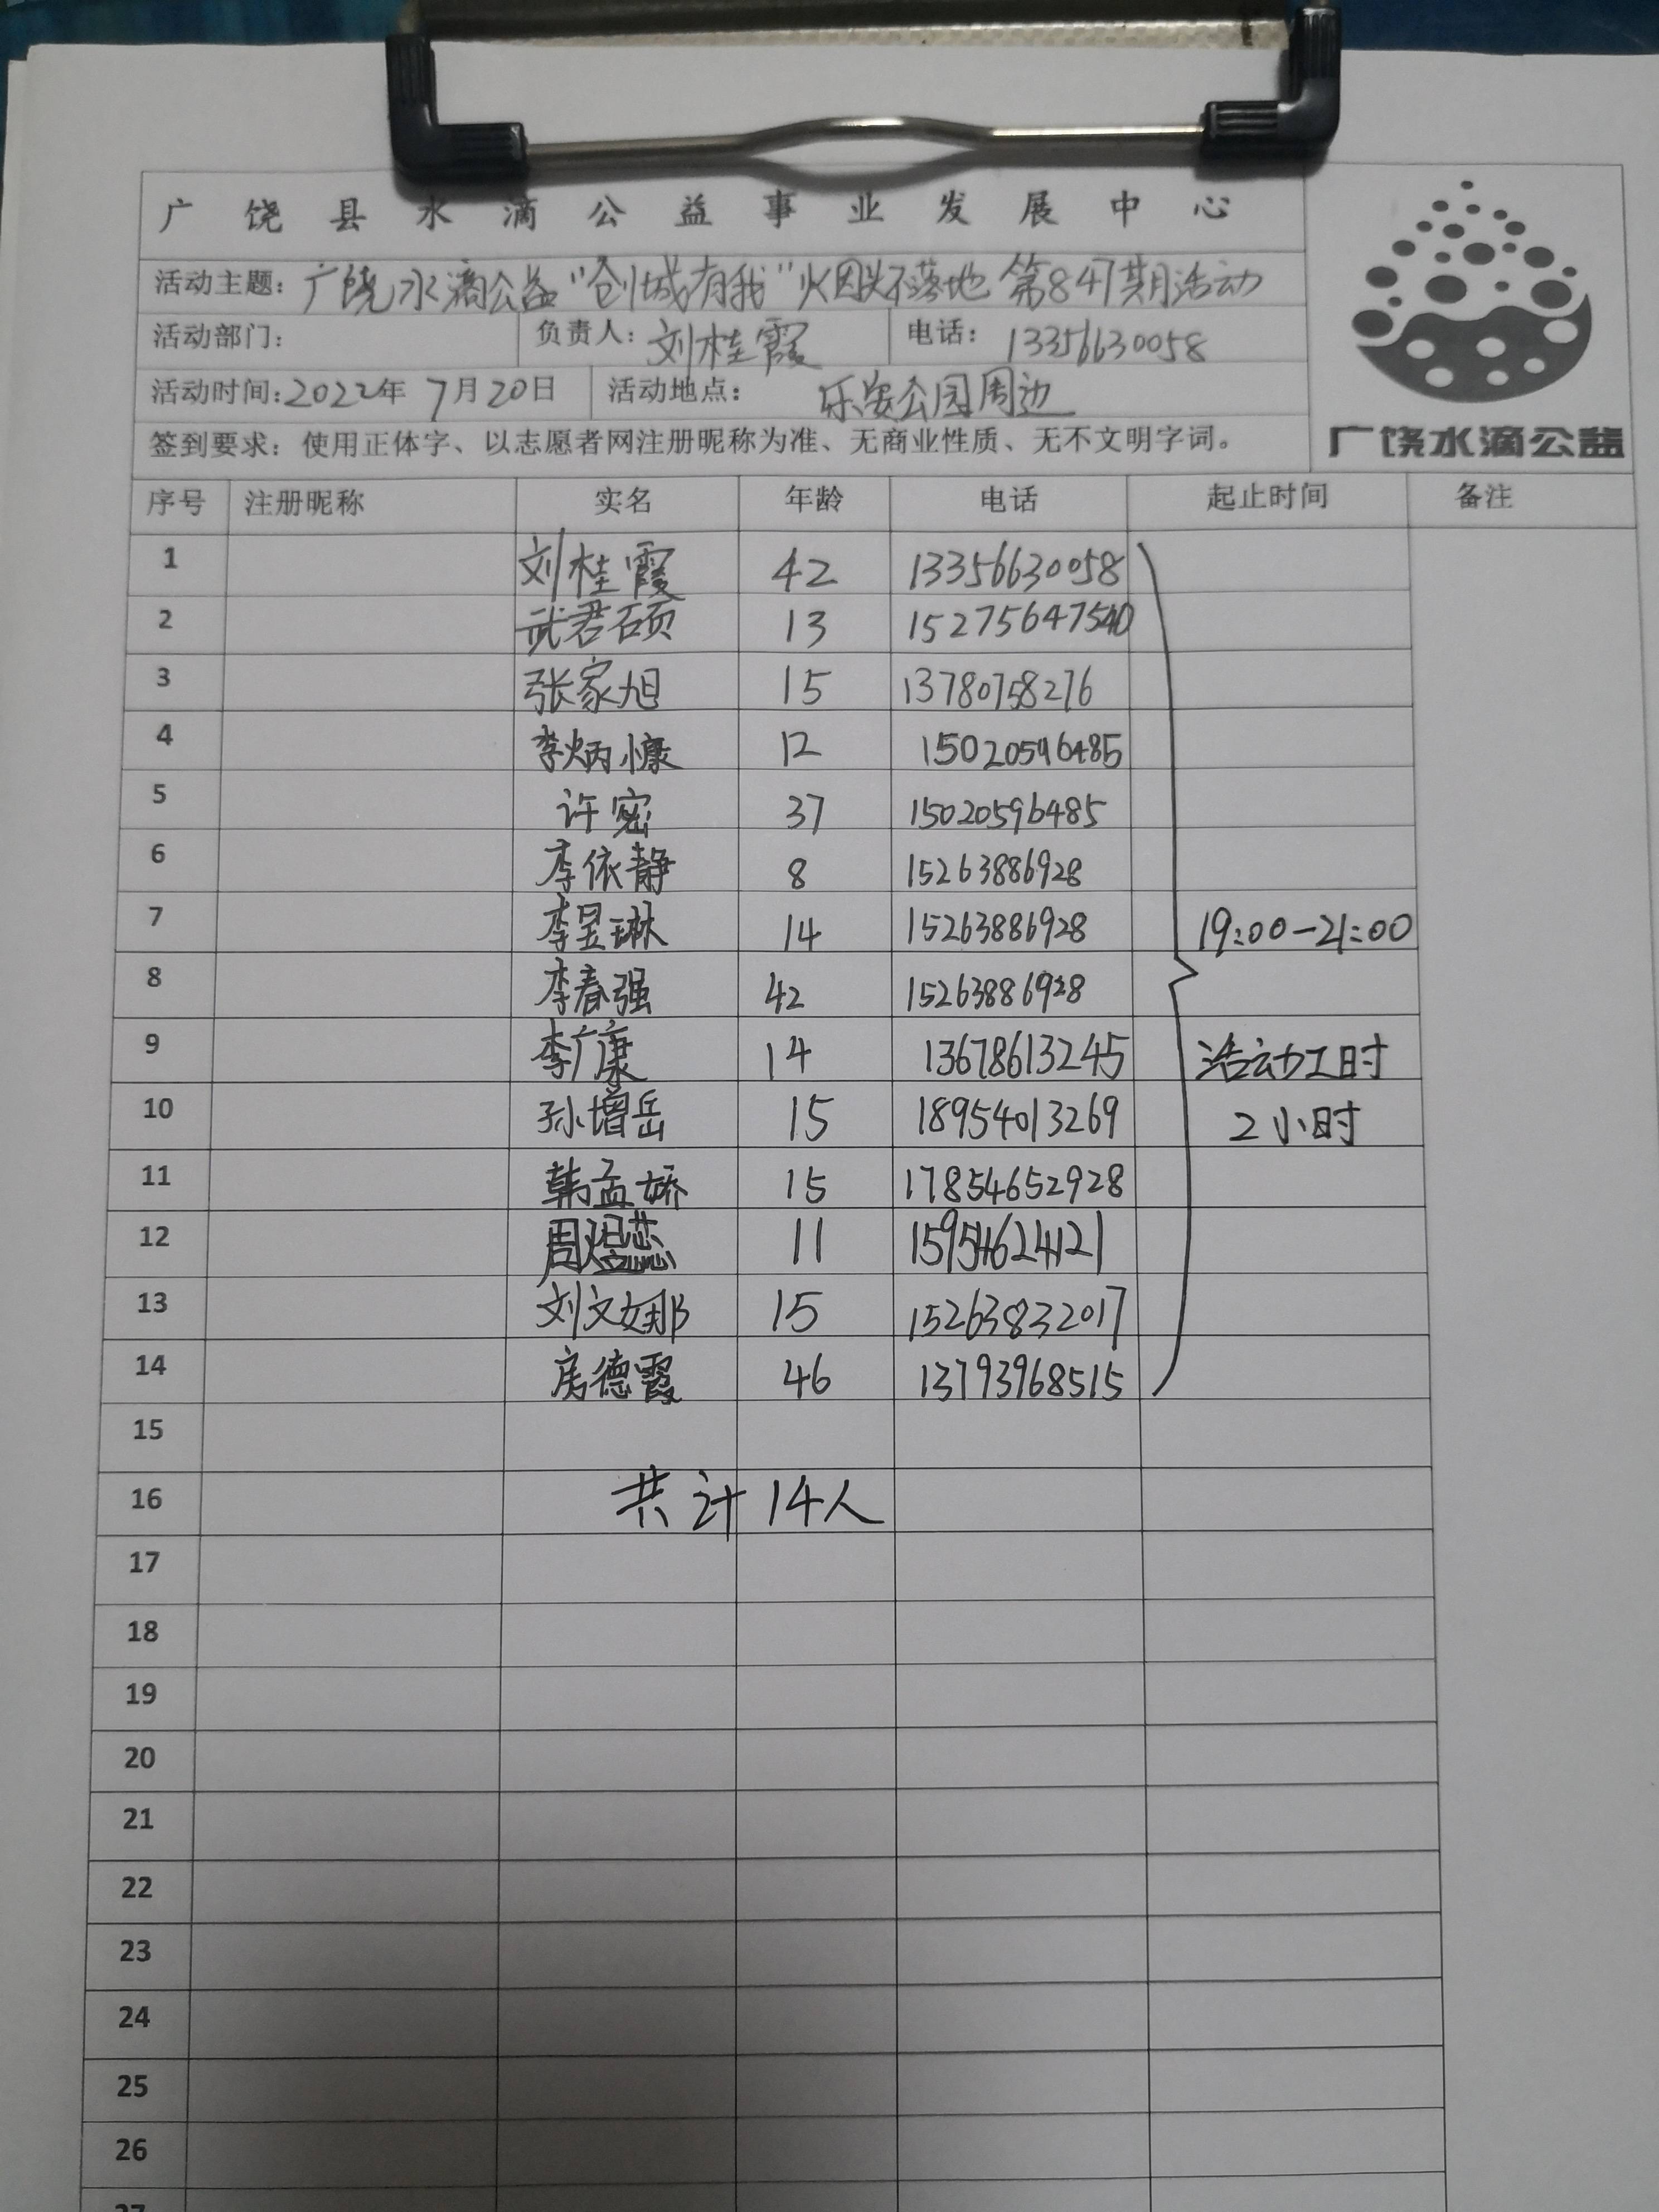 广饶县水滴公益事业发展中心
活动主题：广饶水滴公益“创城有我”火因头不落地 第847期活动
活动部门： 负责人：刘桂霞 电话：13356630058
活动时间：2022年7月20日 活动地点：乐安公园周边
签到要求：使用正体字、以志愿者网注册昵称为准、无商业性质、无不文明字词。
广饶水滴公益
序号 注册昵称 实名 年龄 电话 起止时间 备注
1 刘桂霞 42 13356630058
2 武君硕 13 15275647540
3 张家旭 15 13780758276
4 李炳慷 12 15020596485
5 许密 37 15020596485
6 李依静 8 15263886928
7 李昱琳 14 15263886928 19:00-21:00
8 李春强 42 15263886928
9 李广康 14 13678613245 活动工时
10 孙增岳 15 18954013269 2小时
11 韩孟娇 15 17854652928
12 周煜蕊 11 15954624121
13 刘文娜 15 15263832017
14 房德霞 46 13793968515
15
16 共计14人
17
18
19
20
21
22
23
24
25
26
27